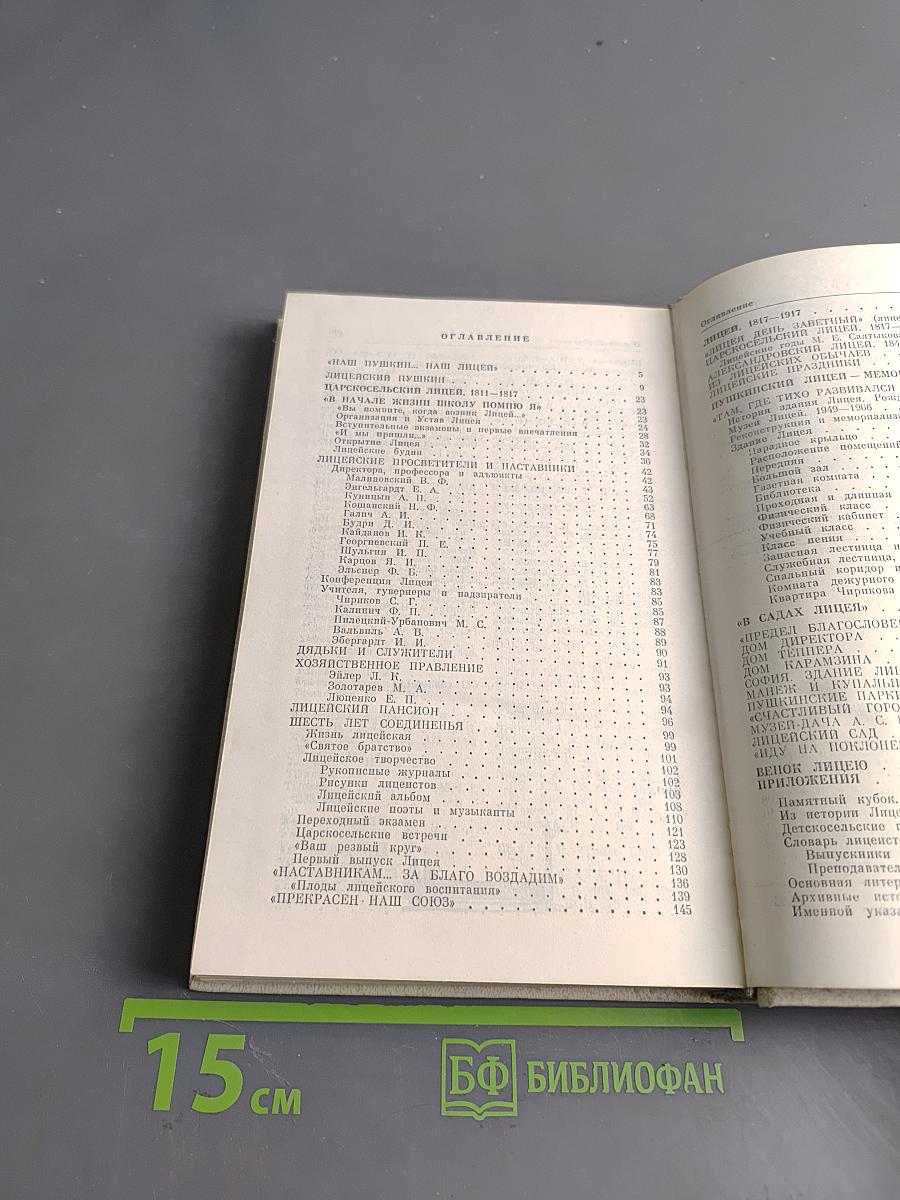 ОГЛАВЛЕНИЕ
«НАШ ПУШКИН... НАШ ЛИЦЕЙ» 5
ЛИЦЕЙСКИЙ ПУШКИН 9
ЦАРСКОСЕЛЬСКИЙ ЛИЦЕЙ, 1811—1817 23
«В НАЧАЛЕ ЖИЗНИ ШКОЛУ ПОМНЮ Я» 23
«Вы помните, когда возник Лицей...» 23
Организация и Устав Лицея 24
Вступительные экзамены и первые впечатления 28
«И мы пришли...» 32
Открытие Лицея 34
Лицейские будни 36
ЛИЦЕЙСКИЕ ПРОСВЕТИТЕЛИ И НАСТАВНИКИ 42
Директора, профессора и адъюнкты 42
Малиновский В. Ф. 43
Энгельгардт Е. А. 52
Куницын А. П. 63
Кошанский Н. Ф. 68
Галич А. И. 71
Будри Д. И. 74
Кайданов И. К. 75
Георгиевский П. Е. 77
Шульгин И. П. 79
Карцов Я. И. 81
Эльснер Ф. Б. 83
Конференция Лицея 83
Учителя, гувернеры и надзиратели 85
Чириков С. Г. 85
Калинич Ф. П. 87
Пилецкий-Урбанович М. С. 88
Вальвиль А. В. 89
Эбергардт И. И. 90
ДЯДЬКИ И СЛУЖИТЕЛИ 91
ХОЗЯЙСТВЕННОЕ ПРАВЛЕНИЕ 93
Эйлер Л. К. 93
Золотарев М. А. 94
Люценко Е. П. 94
ЛИЦЕЙСКИЙ ПАНСИОН 96
ШЕСТЬ ЛЕТ СОЕДИНЕНЬЯ 99
Жизнь лицейская 99
«Святое братство» 101
Лицейское творчество 102
Рукописные журналы 102
Рисунки лицеистов 103
Лицейский альбом 108
Лицейские поэты и музыканты 110
Переходный экзамен 121
Царскосельские встречи 123
«Ваш резвый круг» 128
Первый выпуск Лицея 130
«НАСТАВНИКАМ... ЗА БЛАГО ВОЗДАДИМ» 136
«Плоды лицейского воспитания» 139
«ПРЕКРАСЕН НАШ СОЮЗ» 145
Оглавление
ЛИЦЕЙ. 1817—1917
«ЛИЦЕЯ ДЕНЬ ЗАВЕТНЫЙ»
ЦАРСКОСЕЛЬСКИЙ ЛИЦЕЙ. 1817—
Лицейские годы М. Е. Салтыкова
АЛЕКСАНДРОВСКИЙ ЛИЦЕЙ. 184
ИЗ ЛИЦЕЙСКИХ ОБЫЧАЕВ
ЛИЦЕЙСКИЕ ПРАЗДНИКИ
ПУШКИНСКИЙ ЛИЦЕЙ — МЕМО
«ТАМ, ГДЕ ТИХО РАЗВИВАЛСЯ
История здания Лицея. Рожд
Музей Лицей. 1949—1966
Реконструкция и мемориализ
Здание Лицея
Парадное крыльцо
Расположение помещений
Передняя
Большой зал
Газетная комната
Библиотека
Проходная и длинная
Физический класс
Физический кабинет
Учебный класс
Класс пения
Запасная лестница и
Служебная лестница,
Спальный коридор и
Комната дежурного
Квартира Чирикова
«В САДАХ ЛИЦЕЯ»
«ПРЕДЕЛ БЛАГОСЛОВЕ
ДОМ ДИРЕКТОРА
ДОМ ТЕППЕРА
ДОМ КАРАМЗИНА
СОФИЯ. ЗДАНИЕ ЛИЦ
МАНЕЖ И КУПАЛЬН
ПУШКИНСКИЕ ПАРКИ
«СЧАСТЛИВЫЙ ГОРО
МУЗЕЙ-ДАЧА А. С.
ЛИЦЕЙСКИЙ САД
«ИДУ НА ПОКЛОНЕ
ВЕНОК ЛИЦЕЮ
ПРИЛОЖЕНИЯ
Памятный кубок.
Из истории Лице
Детскосельские
Словарь лицеист
Выпускники
Преподавател
Основная литер
Архивные исто
Именной указа
15 см
БФ БИБЛИОФАН